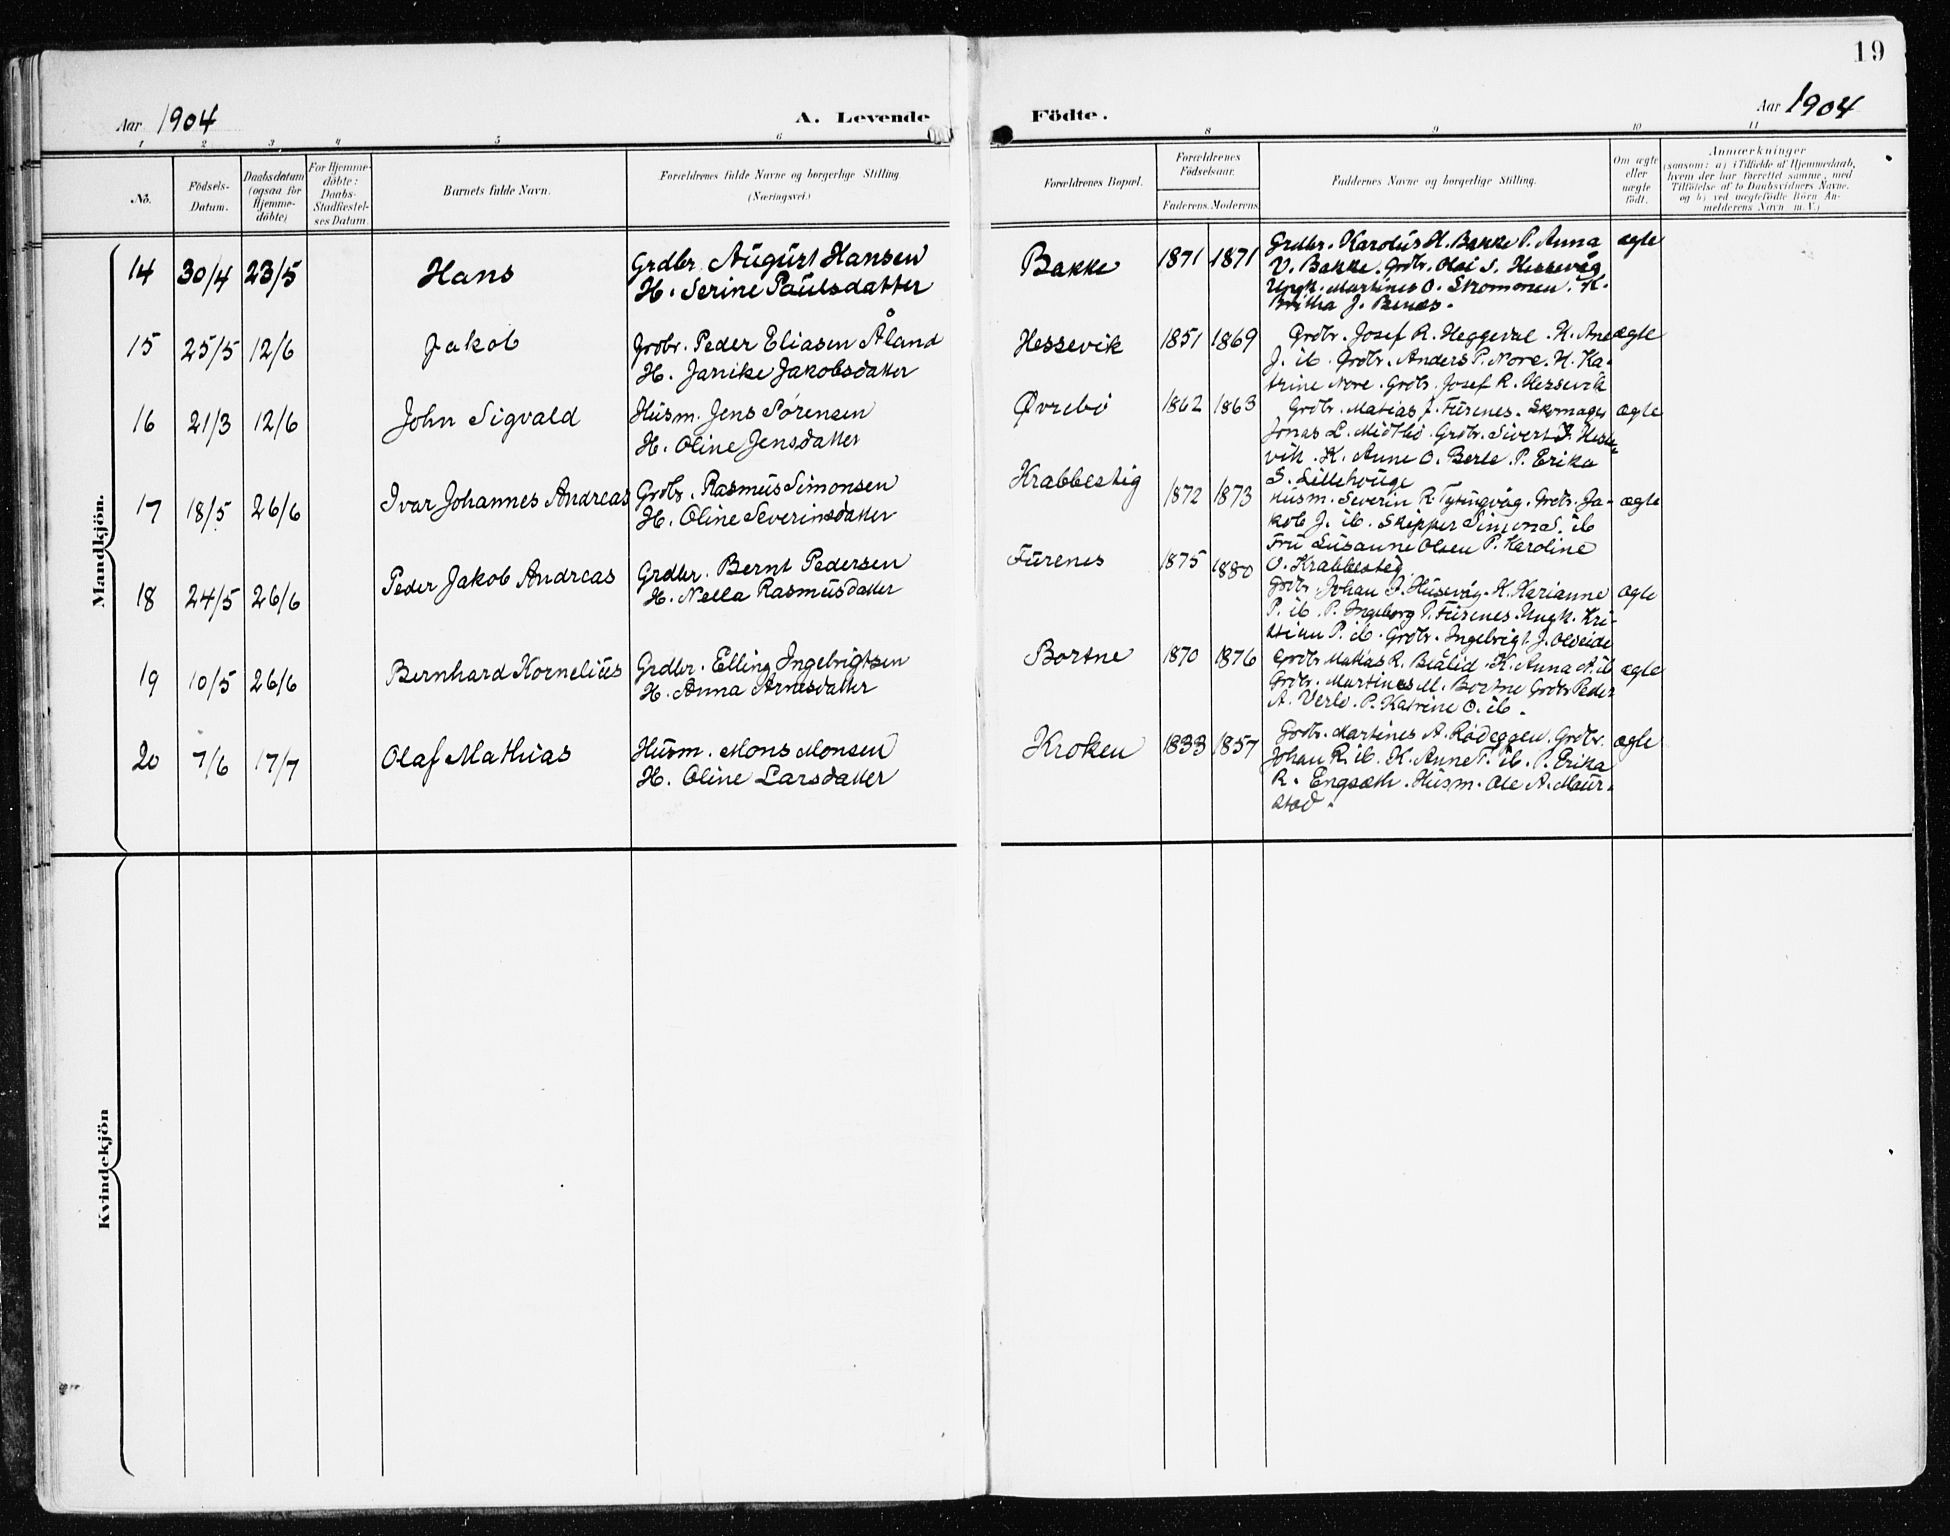 19
Aar 1904
A. Levende
Födte.
Aar 1904
1 2 3 4 5 6 8 9 10 11
No.
Födsels-
Datum.
Daabsdatum
(ogsaa for
Hjemme-
döbte)
For Hjemme-
döbte:
Daabs-
Stadfæstel-
ses Datum.
Barnets fulde Navn.
Forældrenes fulde Navne og borgerlige Stilling
(Næringsvei.)
Forældrenes Bopæl.
Forældrenes
Födselsaar.
Faderens. Moderens
Faddernes Navne og borgerlige Stilling.
Om ægte
eller
uægte
födt.
Anmærkninger
(saasom: a) i Tilfælde af Hjemmedaab,
hvem der har forrettet samme, med
Tilföielse af to Daabsvidners Navne.
og b) ved uægtefödte Börn An-
melderens Navn m. V.)
Mandkjön.
14 30/4 23/5 Hans
Grdbr. August Hansen
H. Serine Paulsdatter
Bakke 1871 1871
Grdbr. Karolus H. Bakke P. Anna
V. Bakke. Grdbr. Olai S. Hessevåg
Ungk. Martines O. Skommen. K.
Britha J. Benes.
ægte
15 25/5 12/6 Jakob
Grdbr. Peder Eliasen Åland
H. Janike Jakobsdatter
Hessevik 1851 1869
Grdbr. Josef R. Heggedal. K. Ane
J. ib. Grdbr. Anders P. Nore. K. Ka-
trine Nore. Grdbr. Josef R. Hessevik
ægte
16 21/3 12/6 John Sigvald
Husm. Jens Sørensen
H. Oline Jensdatter
Øvrebø 1862 1863
Grdbr. Matias J. Furenes. Skomager
Jonas L. Midtbø Grdbr. Sivert J. Hesse-
vik. K. Anne O. Berle. P. Erika
S. Lillehouge
ægte
17 18/5 26/6 Ivar Johannes Andreas
Grdbr. Rasmus Simonsen
H. Oline Severinsdatter
Krabbestig 1872 1873
Husm. Severin R. Tytingvåg. Grdbr. Ja-
kob J. ib. Skipper Simon S. ib
Fru Susanne Olsen P. Karoline
O. Krabbestig
ægte
18 24/5 26/6 Peder Jakob Andreas
Grdbr. Bernt Pedersen
H. Nella Rasmusdatter
Furenes 1875 1880
Grdbr. Johan J. Husevåg. K. Karianne
P. ib. P. Ingeborg P. Furenes. Ungk. Kri-
stian P. ib. Grdbr. Ingebrigt J. Olveide
ægte
19 10/5 26/6 Bernhard Kornelius
Grdbr. Elling Ingebrigtsen
H. Anna Arnesdatter
Bortne 1870 1876
Grdbr. Matias R. Blålid. K. Anna A. ib
Grdbr. Martines M. Bortne Grdbr Peder
A. Verlo. P. Katrine O. ib.
ægte
20 7/6 17/7 Olaf Mathias
Husm. Mons Monsen
H. Oline Larsdatter
Kroken 1833 1857
Grdbr. Martines A. Rødeggen. Grdbr.
Johan R. ib. K. Anne P. ib. P. Erika
R. Engsæth. Husm. Ole A. Maur-
stad.
ægte
Kvindekjön